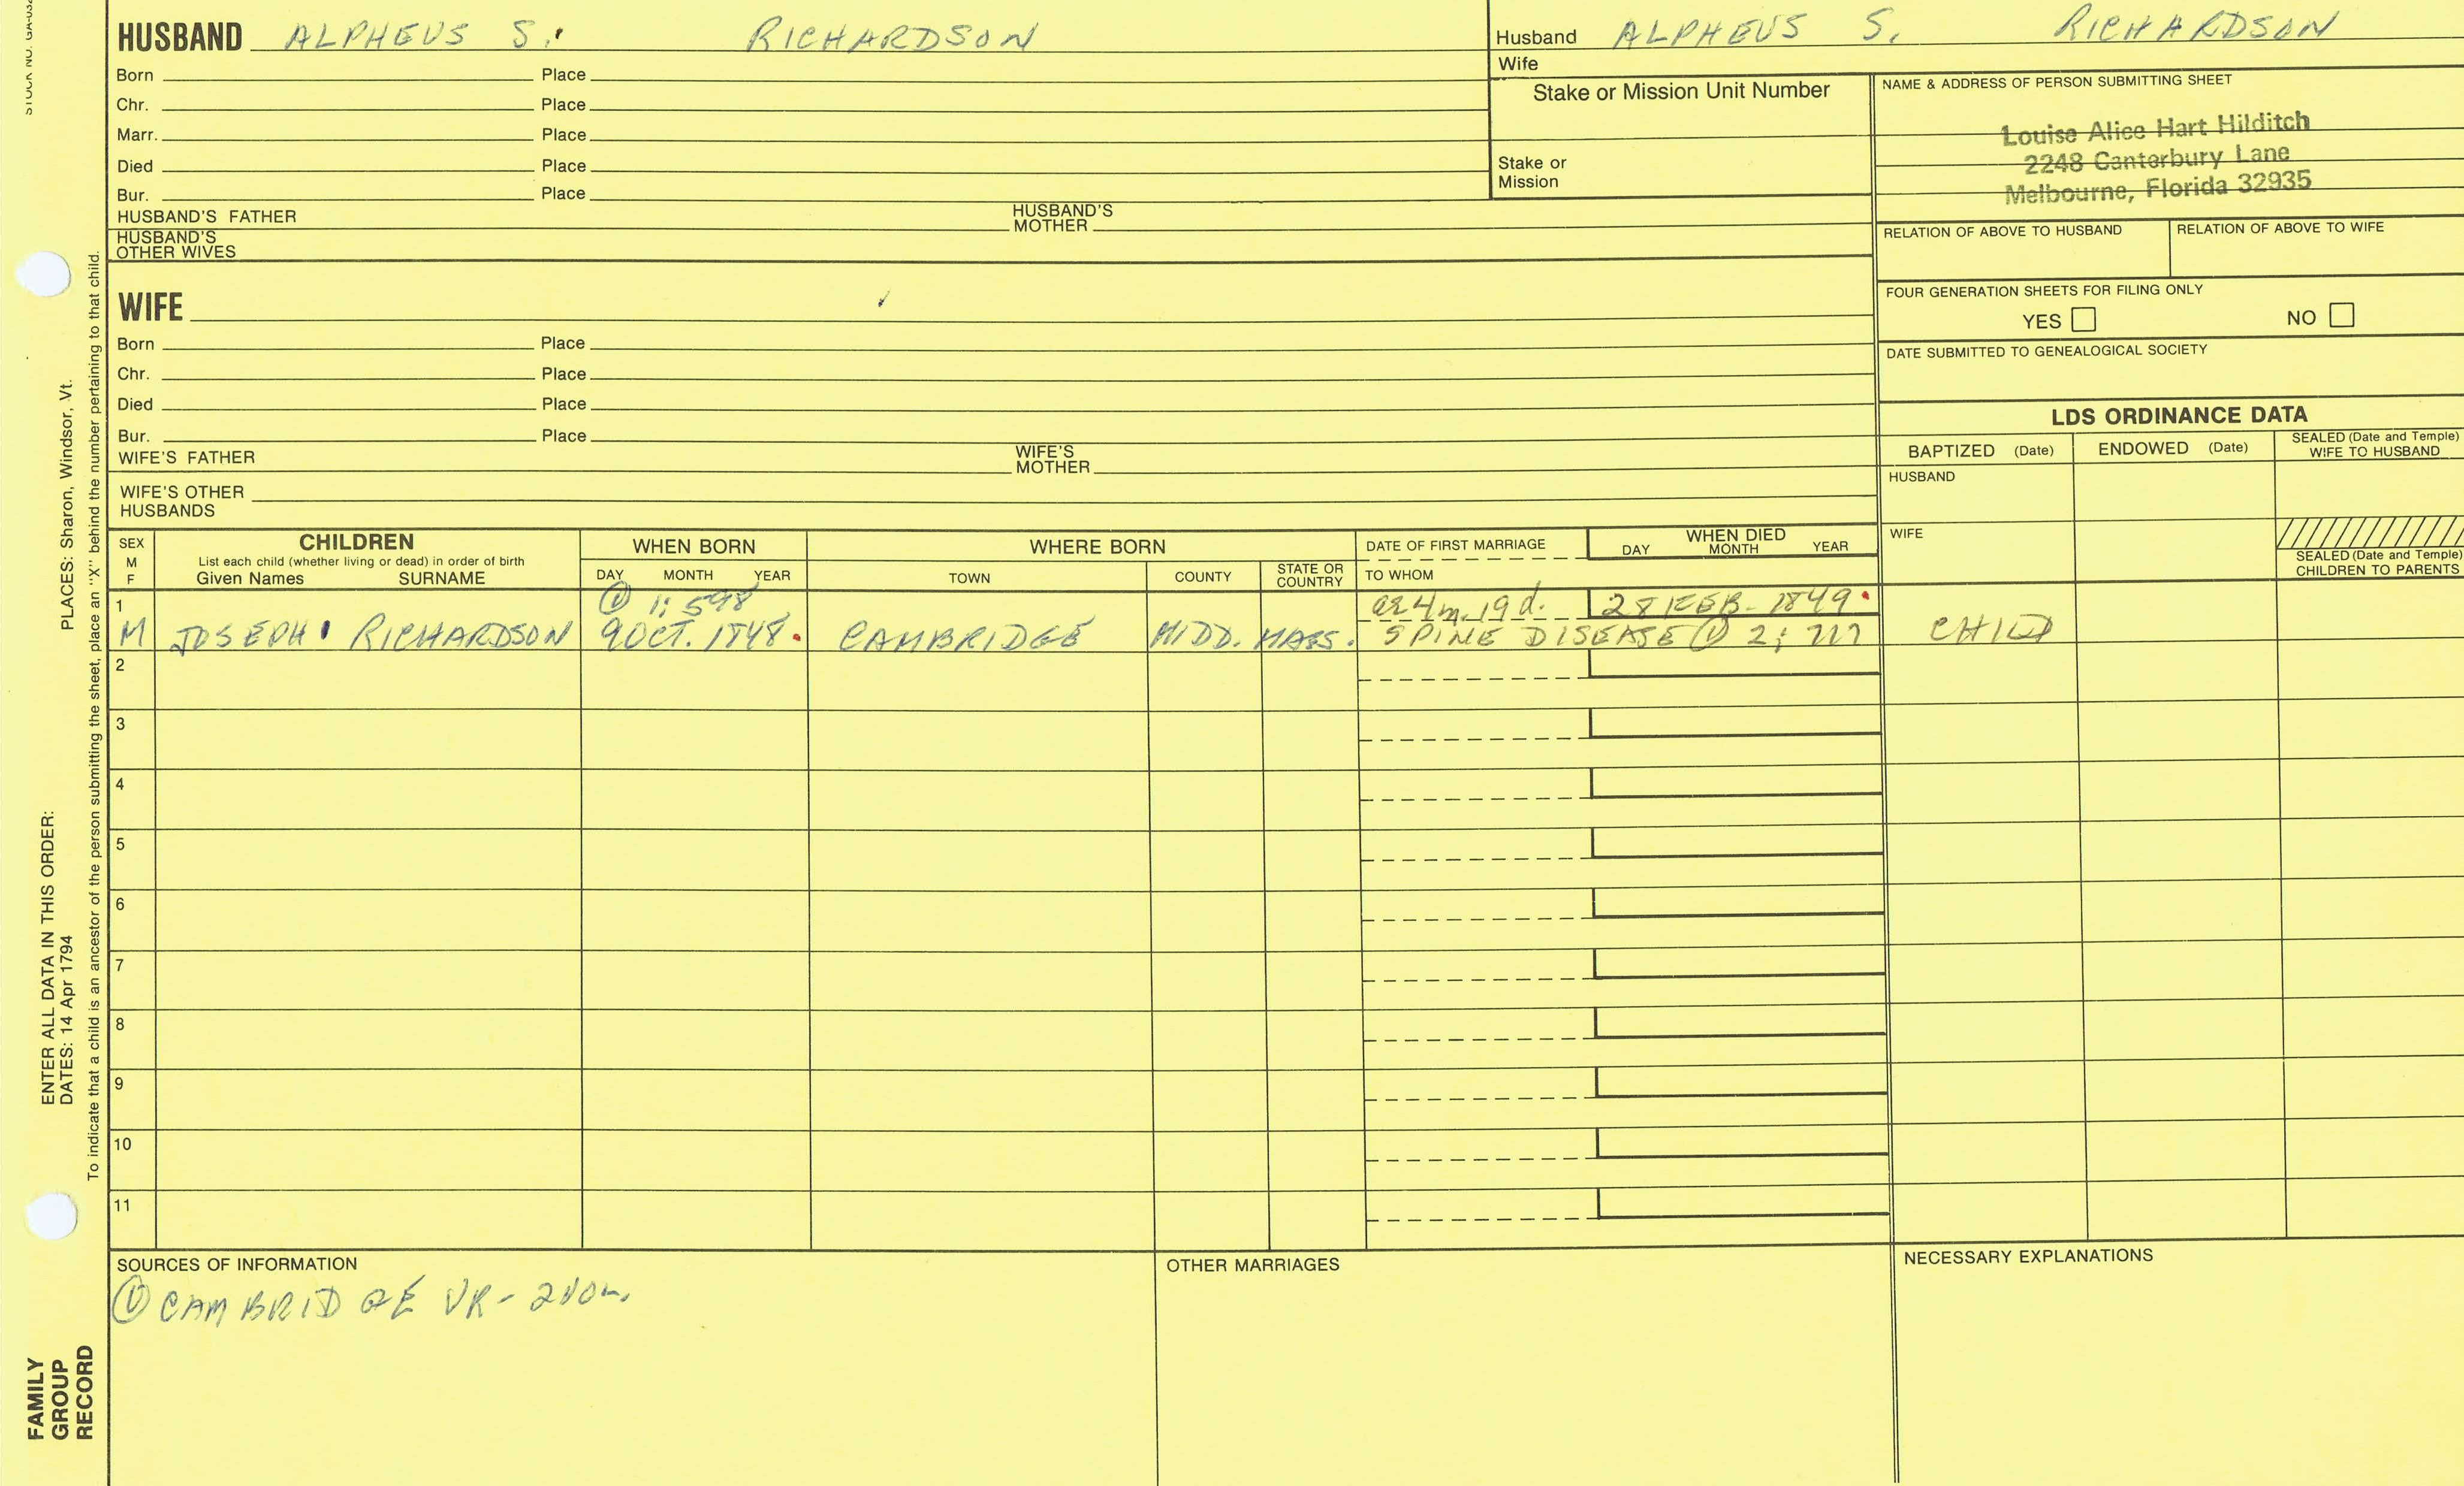 HUSBAND ALPHEUS S. RICHARDSON
Born Place
Chr. Place
Marr. Place
Died Place
Bur. Place
HUSBAND'S FATHER HUSBAND'S MOTHER
HUSBAND'S OTHER WIVES
Husband ALPHEUS S. RICHARDSON
Wife
Stake or Mission Unit Number
Stake or Mission
NAME & ADDRESS OF PERSON SUBMITTING SHEET
Louise Alice Hart Hilditch
2248 Canterbury Lane
Melbourne, Florida 32935
RELATION OF ABOVE TO HUSBAND RELATION OF ABOVE TO WIFE
FOUR GENERATION SHEETS FOR FILING ONLY
YES NO
DATE SUBMITTED TO GENEALOGICAL SOCIETY
WIFE
Born Place
Chr. Place
Died Place
Bur. Place
WIFE'S FATHER WIFE'S MOTHER
WIFE'S OTHER HUSBANDS
LDS ORDINANCE DATA
BAPTIZED (Date) ENDOWED (Date) SEALED (Date and Temple) WIFE TO HUSBAND
HUSBAND
WIFE
SEALED (Date and Temple) CHILDREN TO PARENTS
SEX M F
CHILDREN
List each child (whether living or dead) in order of birth
Given Names SURNAME
WHEN BORN
DAY MONTH YEAR
WHERE BORN
TOWN COUNTY STATE OR COUNTRY
DATE OF FIRST MARRIAGE
TO WHOM
WHEN DIED
DAY MONTH YEAR
1 ① 1; 598 ae 4m. 19d. 28 FEB. 1849
M JOSEPH RICHARDSON 9 OCT. 1848 CAMBRIDGE MIDD. MASS. SPINE DISEASE ① 2; 717 CHILD
2
3
4
5
6
7
8
9
10
11
SOURCES OF INFORMATION
① CAMBRIDGE VR- 2 VOL.
OTHER MARRIAGES
NECESSARY EXPLANATIONS
ENTER ALL DATA IN THIS ORDER:
DATES: 14 Apr 1794 PLACES: Sharon, Windsor, Vt.
To indicate that a child is an ancestor of the person submitting the sheet, place an "X" behind the number pertaining to that child.
FAMILY
GROUP
RECORD
STOCK NO.